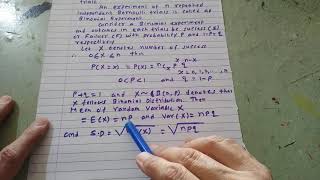 trials.
An experiment of n repeated
independent Bernoulli trials is called as
Binomial Experiment.
Consider a Binomial experiment
and outcomes in each trials be success (S)
or Failure (F) with probability P and 1-P
respectively
Let X denotes number of success
∴ 0≤X≤n then
P(X=x) = P(x) = nCx p^x q^(n-x)
x = 0, 1, ..., n
0<P<1 and q = 1-P
P+q=1 and X~B(n,P) denotes that
X follows Binomial Distribution. Then
Mean of random variable X
= E(X) = nP and Var(X) = npq
and S.D = √(X) = √npq